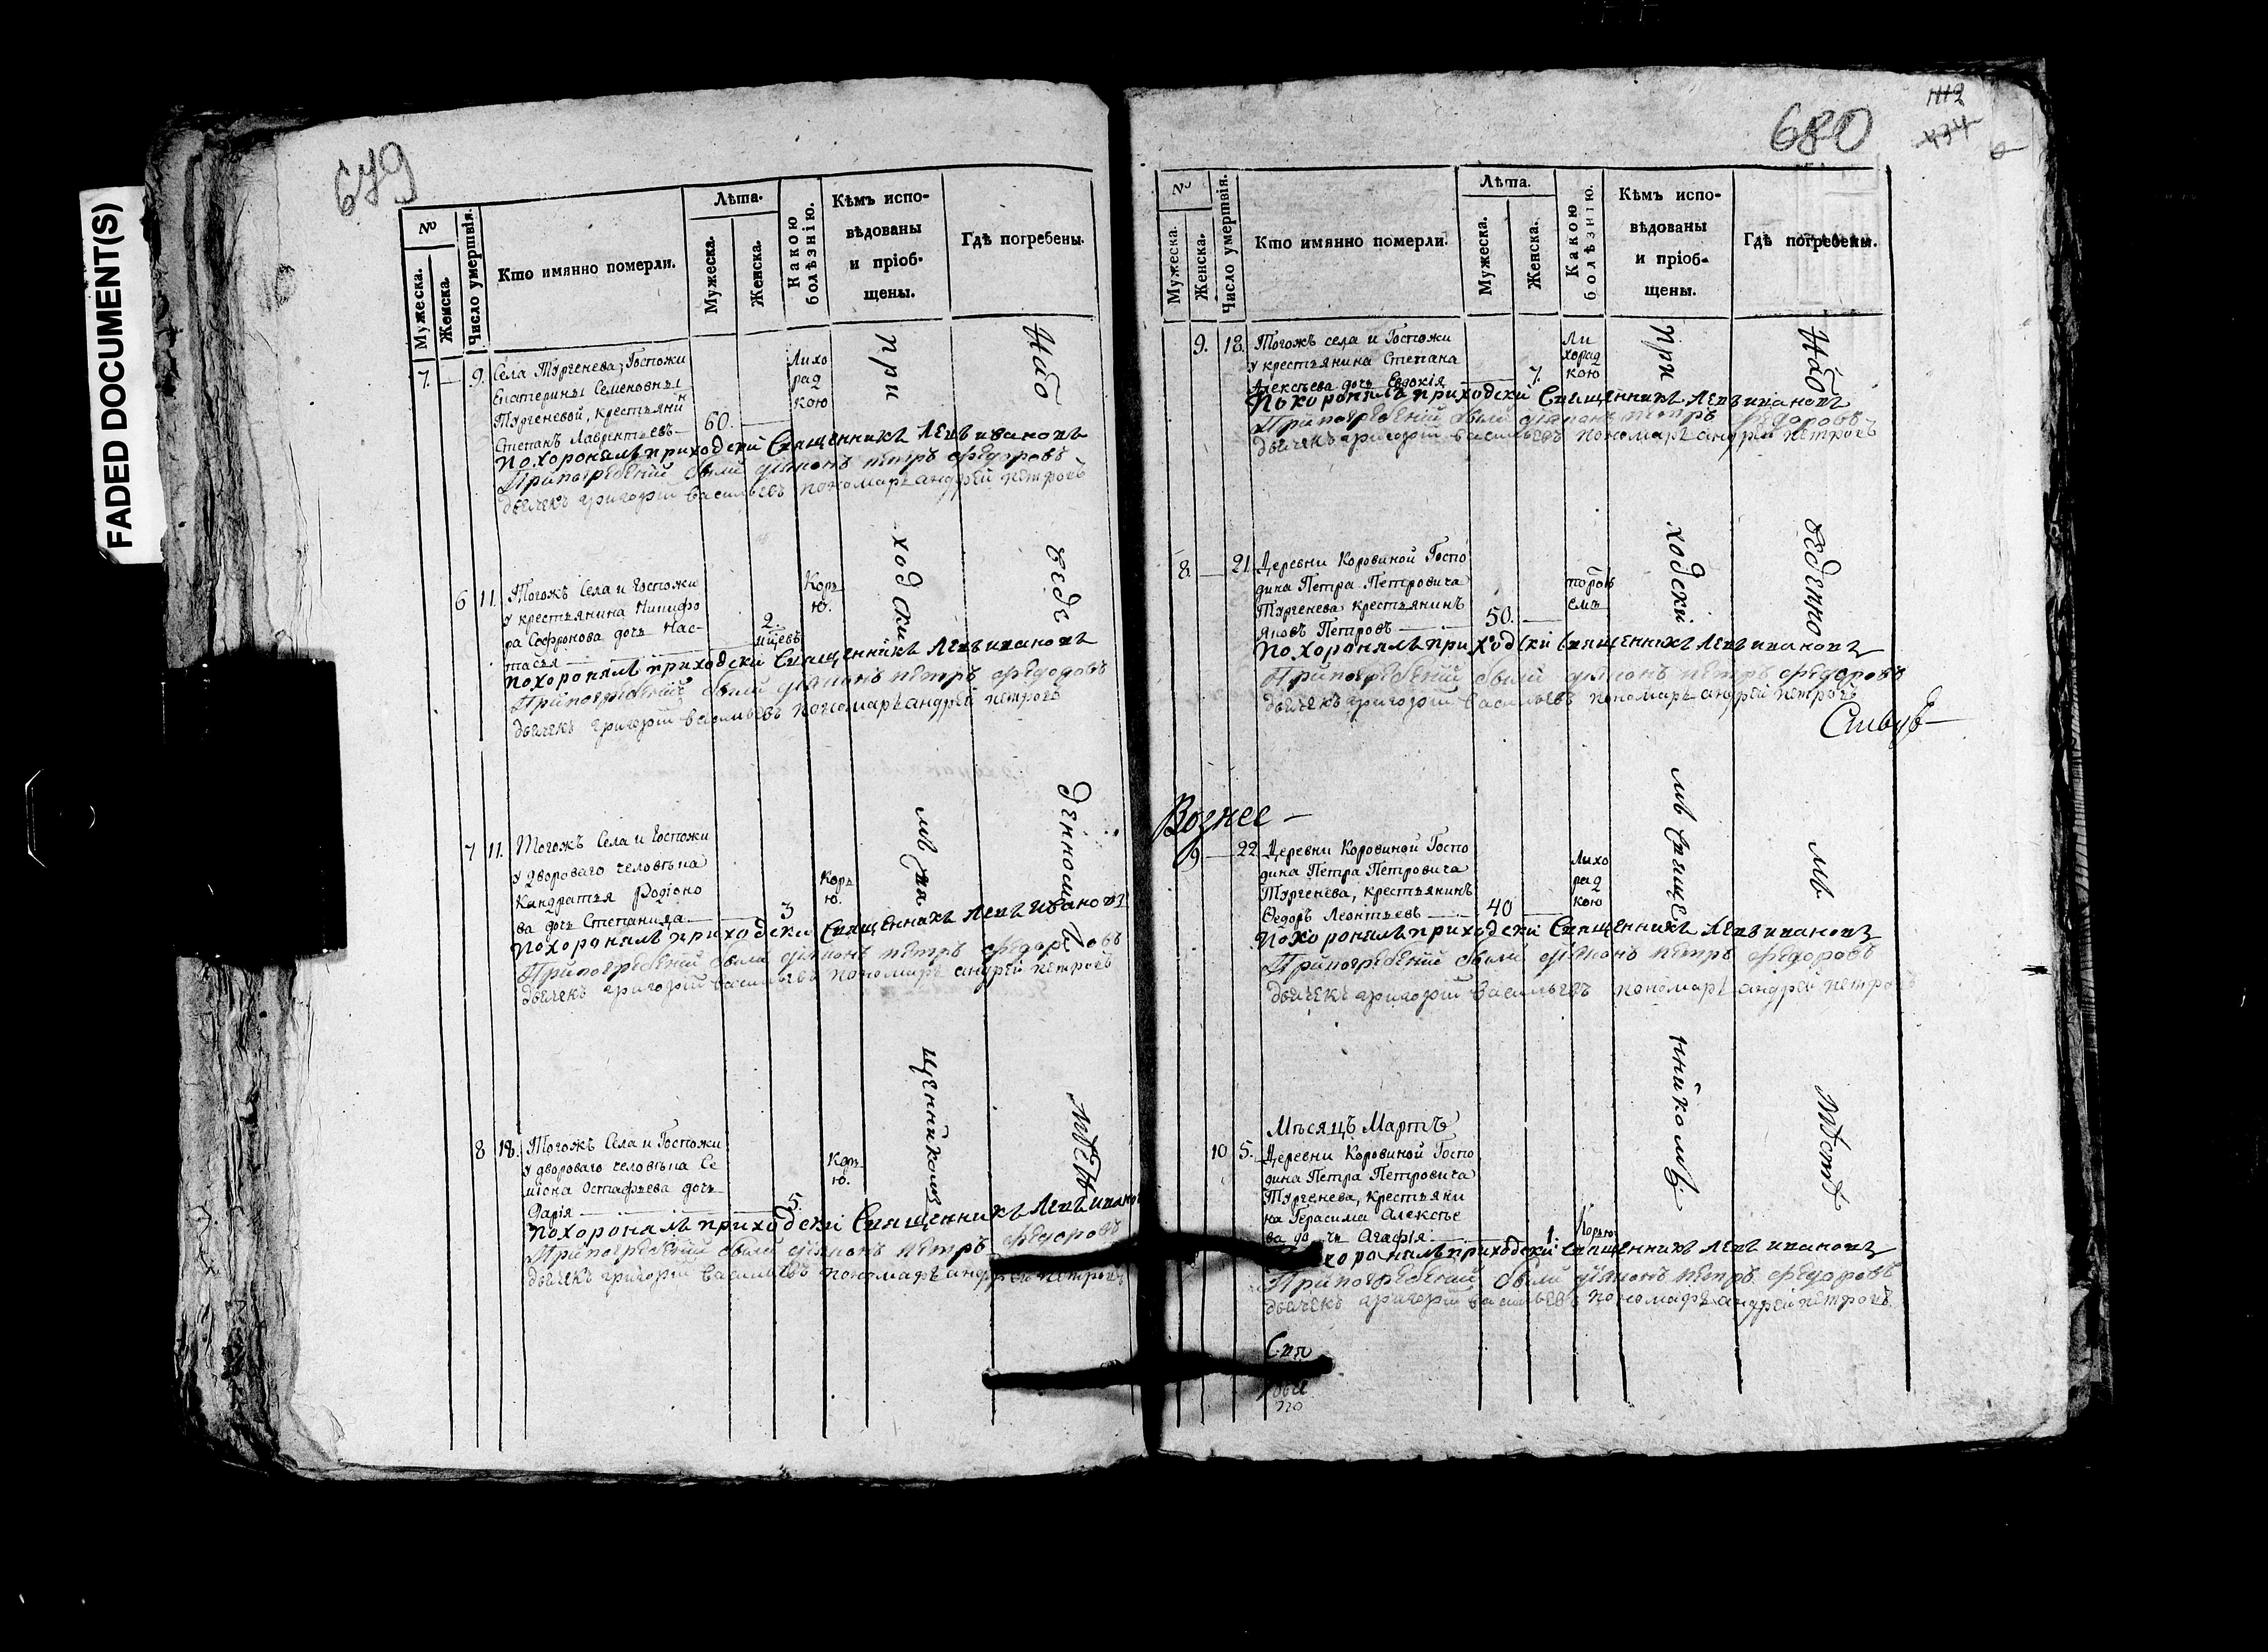 FADED DOCUMENT(S)
679
№
Мужеска.
Женска.
Число умертвія.
Кто имянно померли.
Лѣта.
Мужеска.
Женска.
Какою болѣзнію.
Кѣмъ испо-
вѣдованы
и пріоб-
щены.
Гдѣ погребены.
7. — 9. Села Тургенева, Госпожи
Екатерины Семеновны
Тургеневой, крестьянинъ
Степанъ Лаврентьевъ — 60. —
Лихо
рад
кою
Похоронялъ приходски Священникъ Левъ Ивановъ
При погребеніи были діяконъ Петръ Федоровъ
дьячекъ григорій васильевъ пономарь андрей петровъ
6 11. Тогожъ Села и Госпожи
у крестьянина Никифо
ра Софронова дочь Нас-
тасья — 2. мцевъ
Корь
ю.
Похоронялъ приходски Священникъ Левъ Ивановъ
При погребеніи были діяконъ петръ федоровъ
дьячекъ григорій васильевъ пономарь андрей петровъ
7 11. Тогожъ Села и Госпожи
у двороваго человѣка
Кандратья Родіоно
ва дочь Степанида — 3
Корь
ю.
Похоронялъ приходски Священникъ Левъ Ивановъ
При погребеніи были діяконъ петръ федоровъ
дьячекъ григорій васильевъ пономарь андрей петровъ
8 18. Тогожъ Села и Госпожи
у двороваго человѣка Се
міона Остафьева дочь
Дарія — 5.
Корь
ю.
Похоронялъ приходски Священникъ Левъ Ивановъ
При погребеніи были діяконъ петръ федоровъ
дьячекъ григорій васильевъ пономарь андрей петровъ
при
ходски
мъ свя
щенникомъ
На о
тведе
денномъ
мѣстѣ
680
№
Мужеска.
Женска.
Число умертвія.
Кто имянно померли.
Лѣта.
Мужеска.
Женска.
Какою болѣзнію.
Кѣмъ испо-
вѣдованы
и пріоб-
щены.
Гдѣ погребены.
9. 18. Тогожъ села и Госпожи
у крестьянина Степана
Алексѣева дочь Евдокія — 7.
Ли
хорад
кою
Похоронялъ приходски Священникъ Левъ Ивановъ
При погребеніи были діяконъ петръ федоровъ
дьячекъ григорій васильевъ пономарь андрей петровъ
8. — 21. Деревни Коровиной Госпо
дина Петра Петровича
Тургенева крестьянинъ
Яковъ Петровъ — 50. —
Похоронялъ приходски Священникъ Левъ Ивановъ
При погребеніи были діяконъ петръ федоровъ
дьячекъ григорій васильевъ пономарь андрей петровъ
Вознее —
9 — 22 Деревни Коровиной Госпо
дина Петра Петровича
Тургенева, крестьянинъ
Ѳедоръ Леонтьевъ — 40 —
Лихо
рад
кою
Похоронялъ приходски Священникъ Левъ Ивановъ
При погребеніи были діяконъ петръ федоровъ
дьячекъ григорій васильевъ пономарь андрей петровъ
Мѣсяцъ Мартъ
10 5. Деревни Коровиной Госпо
дина Петра Петровича
Тургенева, крестьяни
на Герасима Алексѣе
ва дочь Агафія — 1.
Корью
Похоронялъ приходски Священникъ Левъ Ивановъ
При погребеніи были діяконъ петръ федоровъ
дьячекъ григорій васильевъ пономарь андрей петровъ
при
ходски
мъ свяще
нникомъ
На о
веденно
мъ
мѣстѣ